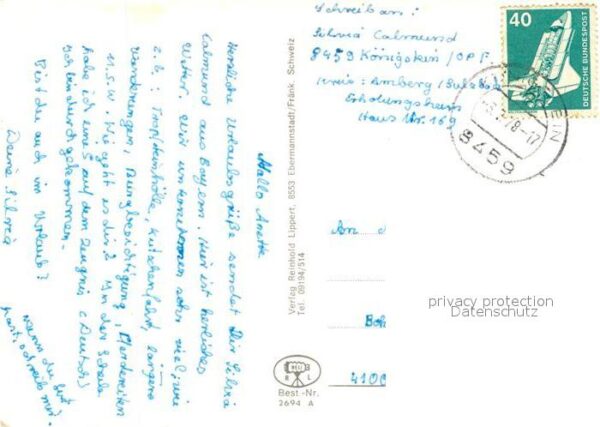 Hallo Anette
Herzliche Urlaubsgrüße sendet Dir Silvia
Calmund aus Bayern. Hier ist herrliches
Wetter. Wir unternehmen sehr viel; wie
z.b: Tropfsteinhölle, Kutschenfahrt, längere
Wanderungen, Burgbesichtigung, Pferdereiten
u.s.w. Wie geht es dir? In der Schule
habe ich eine 5 auf dem Zeugnis (Deutsch)
Ich bin durchgekommen.
Bist du auch im Urlaub?
Deine Silvia
Wenn du Lust
hast, schreib mir.
Verlag Reinhold Lippert, 8553 Ebermannstadt/Fränk. Schweiz
Tel. 09194/514
Schreib an:
Silvia Calmund
8459 Königstein/OPF
Kreis: Amberg/Sulzbach
Erholungsheim
Haus Nr. 169
40
DEUTSCHE BUNDESPOST
78-17
8459
An
Boh
4100
privacy protection
Datenschutz
R L
Best.-Nr.
2694 A